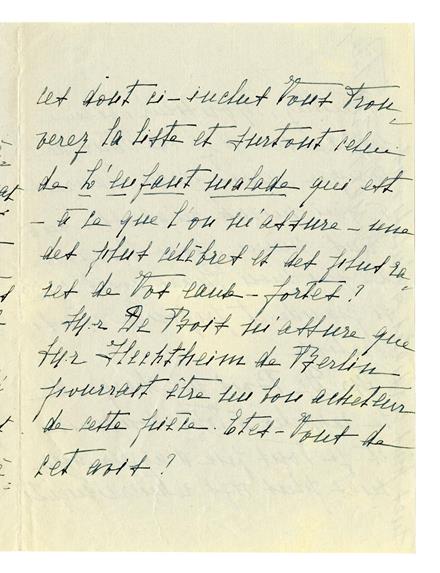 ces dont ci-inclus Vous trou-
verez la liste et surtout celui
de L'enfant malade qui est
- à ce que l'on m'assure - une
des plus célèbres et des plus ra-
res de Vos eaux-fortes?
Mr De Bois m'assure que
Mr Hechtheim de Berlin
pourrait être un bon acheteur
de cette pièce. Etes-Vous de
cet avis?